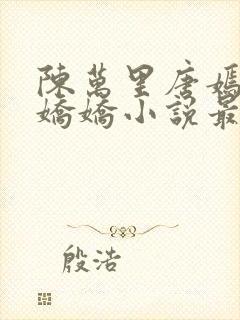 陳萬里唐嫣
嬌嬌小說最
殷浩